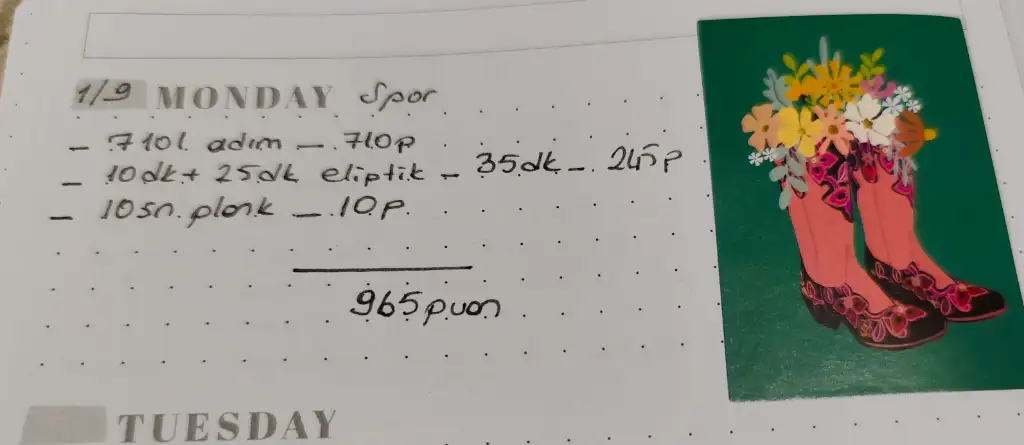 1/9 MONDAY Spor
- 7101 adım - 710p
- 10dk+ 25dk eliptik - 35dk - 245p
- 10sn. plank - 10p.
965puan
TUESDAY